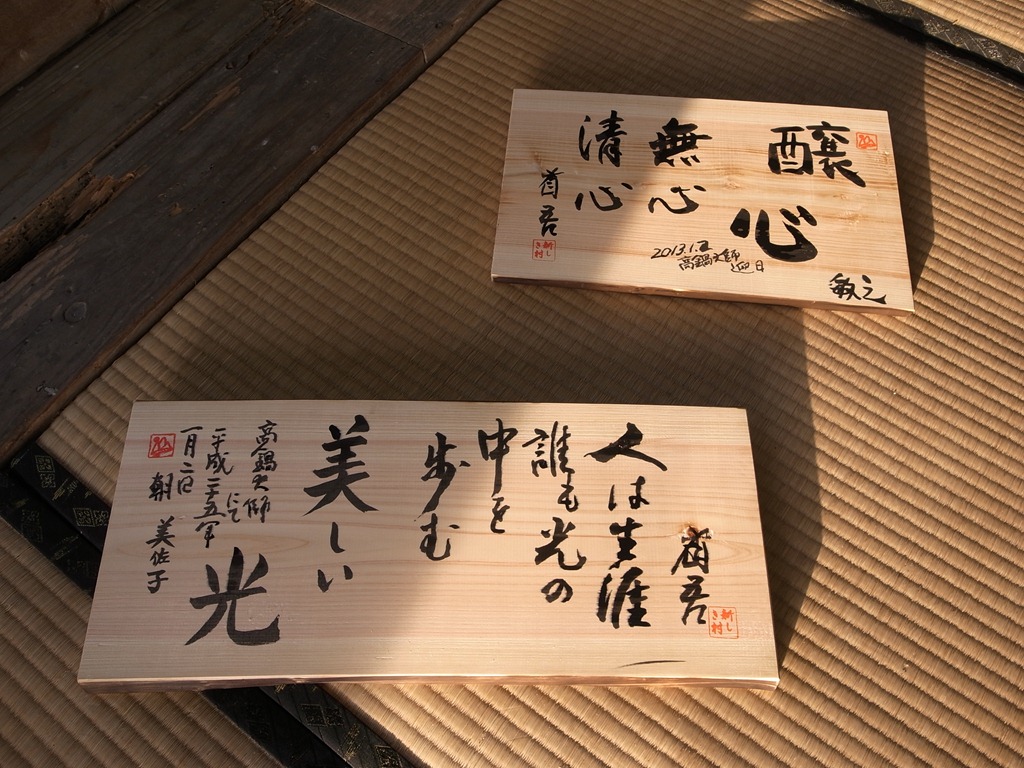 醸心
敏之
2013.1.2
高鍋大師
迎日
無心
清心
酋吾
新し
き村
酋吾
新し
き村
人は生涯
誰も光の
中を
歩む
美しい
光
高鍋大師
にて
平成二十五年
一月二日
朝 美佐子